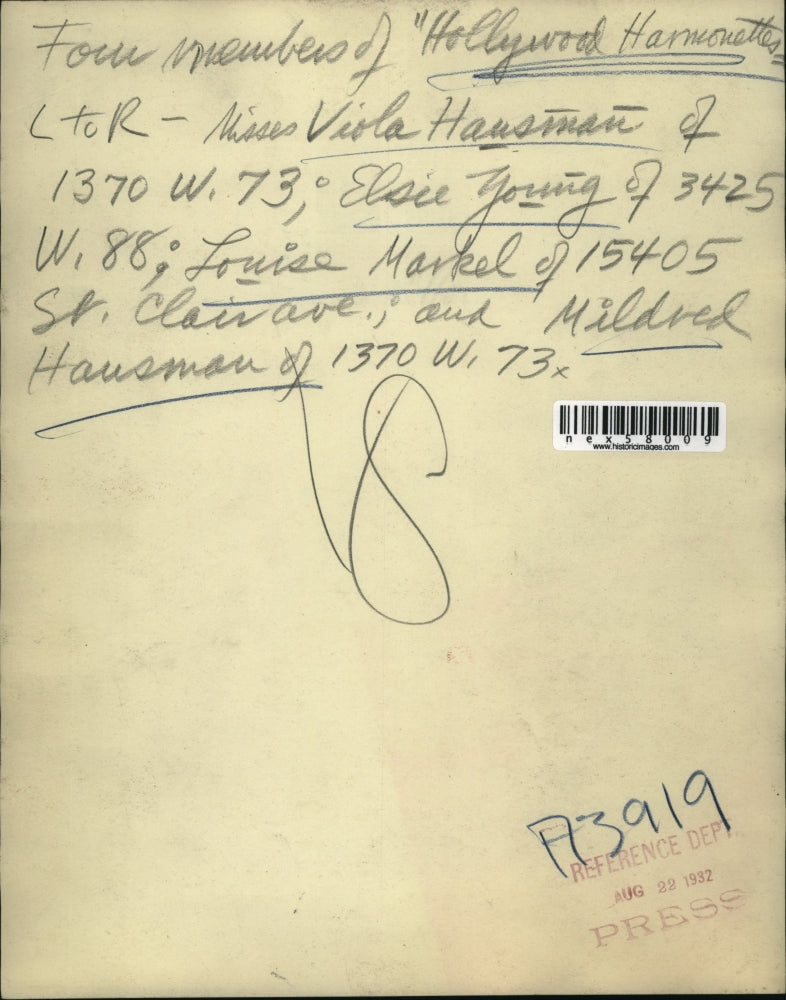 Four members of "Hollywood Harmonettes"
L to R - Misses Viola Hausman of
1370 W. 73,; Elsie Young of 3425
W. 88; Louise Markel of 15405
St. Clair ave.; and Mildred
Hausman of 1370 W. 73x
nex58009
www.historicimages.com
A3919
REFERENCE DEPT.
AUG 22 1932
PRESS